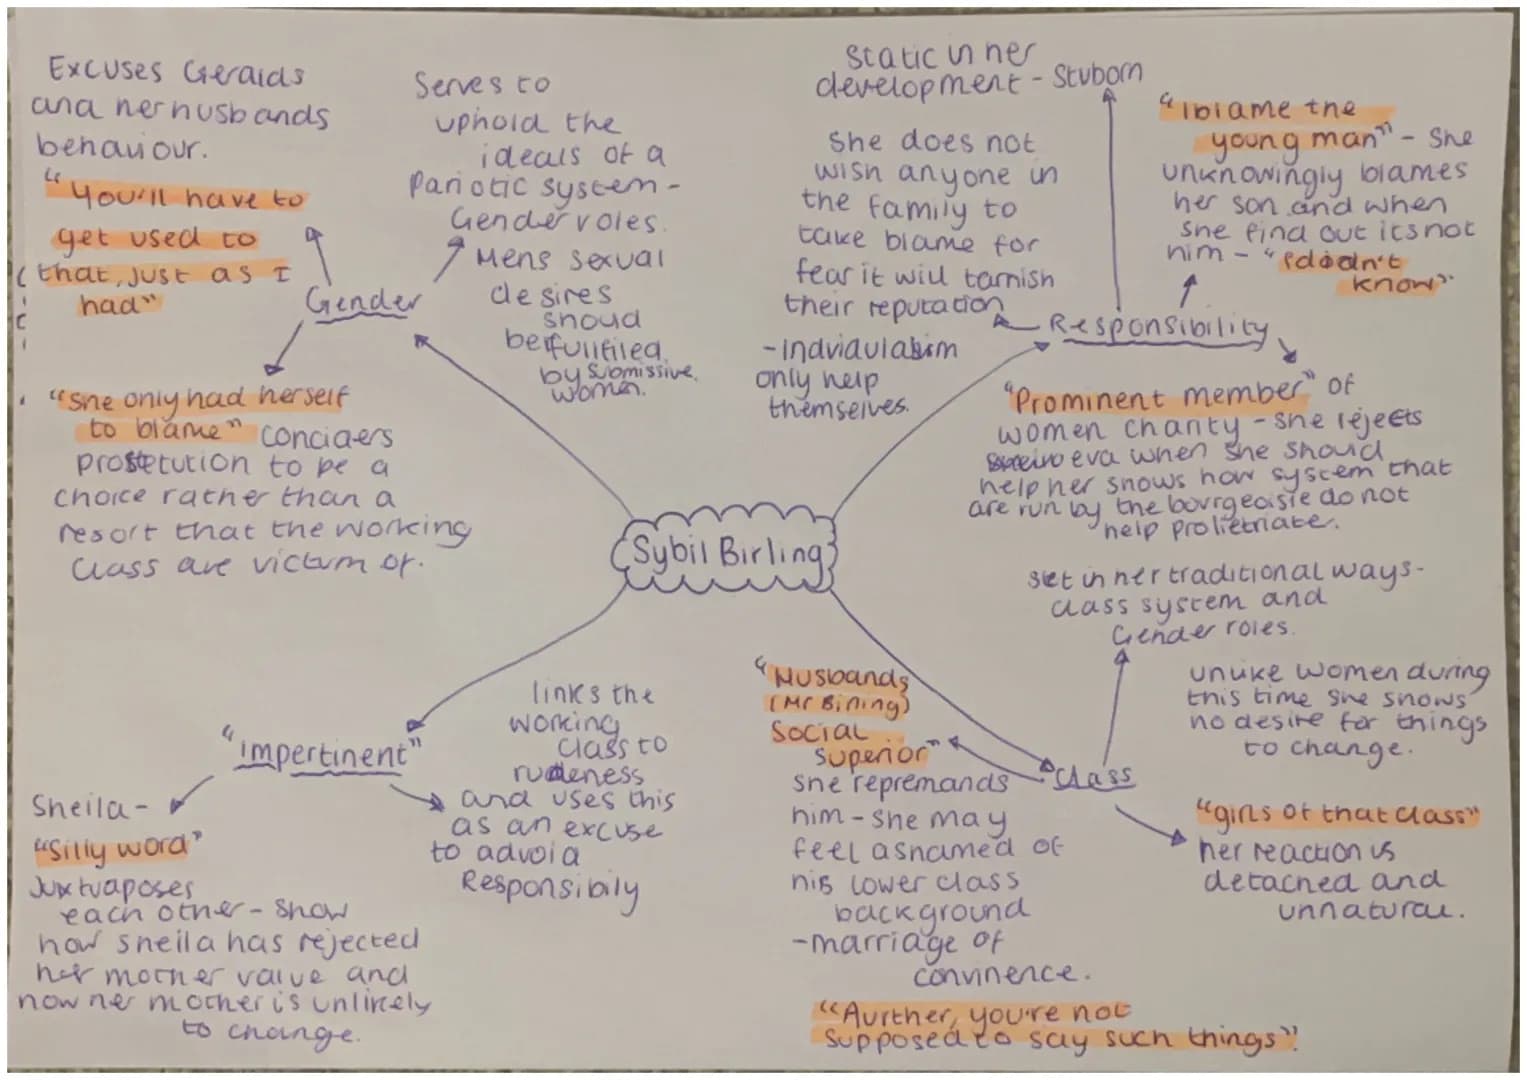 Excuses Geralds
and her husbands
behaviour.
"You'll have to
get used to
that, just as I
had"
Serves to
uphold the
ideals of a
Pariotic system -
Gender roles.
Mens sexual
desires
shoud
be fullfiled
by submissive
women.
Gender
"She only had herself
to blame" conciders
prostetution to be a
choice rather than a
resort that the working
class are victum of.
Static in her
development - Stuborn
She does not
wish anyone in
the family to
take blame for
fear it will tarnish
their reputation
- Indviaulabism
only help
themselves.
"I blame the
young man" - She
unknowingly blames
her son and when
she find out its not
him - "I didn't
know"
Responsibility
"Prominent member" of
women charity - she rejects
eva when she should
help her shows how system that
are run by the bourgeoisie do not
help prolietriate.
Sybil Birling
"impertinent"
links the
working
class to
rudeness
and uses this
as an excuse
to advoid
Responsibily
Sheila -
"Silly word"
Juxtuaposes
each other - show
how sheila has rejected
her mother value and
how her mother is unlikely
to change.
set in her traditional ways -
class system and
Gender roles.
unlike women during
this time she shows
no desire for things
to change.
"Husbands
(Mr Birling)
Social
superior"
she repremands
him - she may
feel ashamed of
his lower class
background
- marriage of
convinence.
"Aurther, you're not
supposed to say such things"
Class
"girls of that class"
her reaction is
detached and
unnatural.